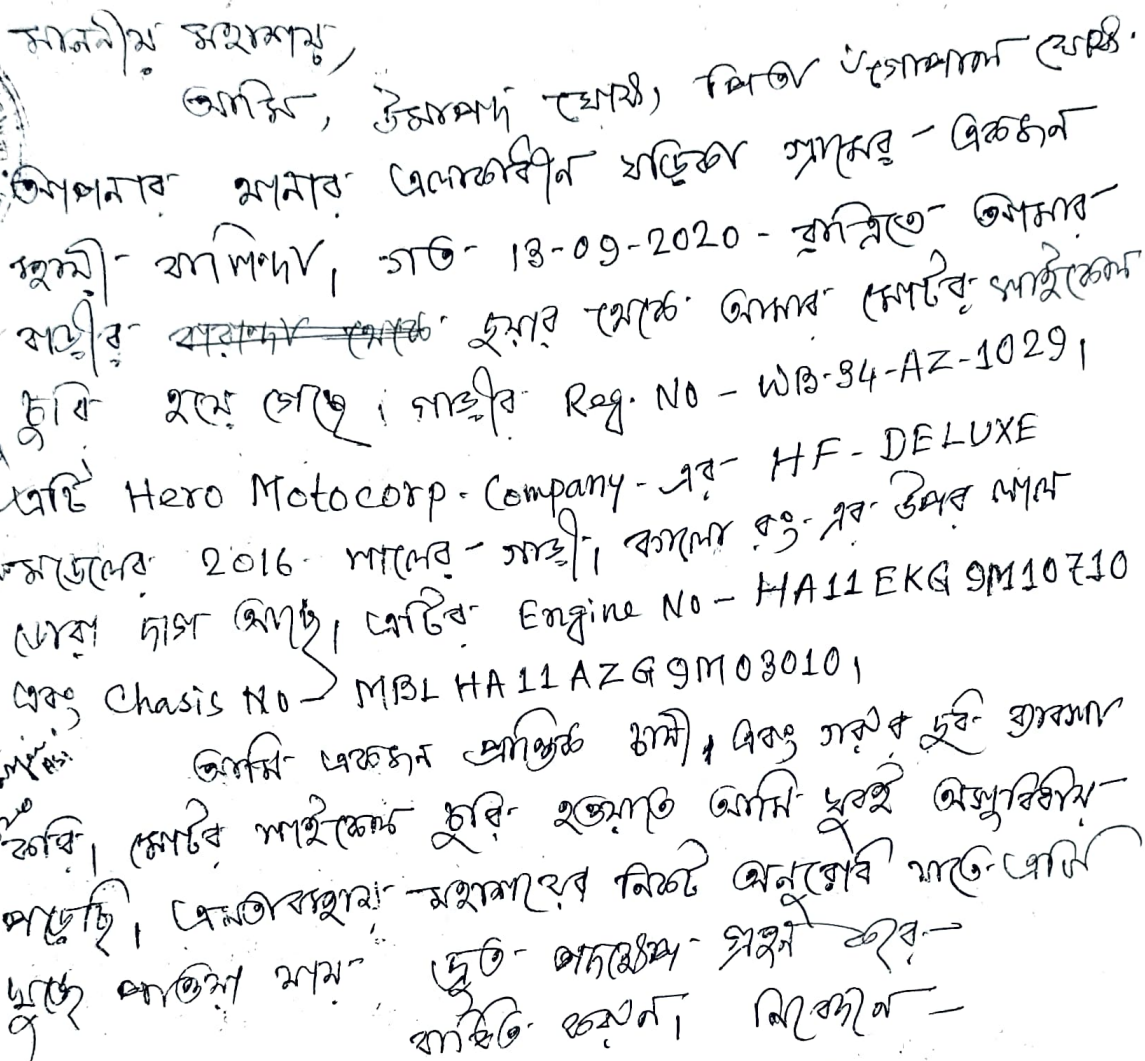 মাননীয় মহাশয়,
আমি, উমাপদ ঘোষ, পিতা ৺গোপাল ঘোষ.
আপনার থানার এলাকাধীন খড়িকা গ্রামের - একজন
স্থায়ী বাসিন্দা। গত 13-09-2020 - রাত্রিতে আমার
বাড়ীর বারান্দা থেকে দুয়ার থেকে আমার মোটর সাইকেল
চুরি হয়ে গেছে। গাড়ীর Reg. No - WB-34-AZ-1029।
এটি Hero Motocorp. Company - এর HF - DELUXE
মডেলের 2016 সালের - গাড়ী। কালো রং-এর উপর লাল
ডোরা দাগ আছে। এটির Engine No - HA11EKG9M10710
এবং Chasis No - MBLHA11AZG9M03010।
আমি একজন প্রান্তিক চাষী, এবং গরুর দুধ ব্যবসা
করি। মোটর সাইকেল চুরি হওয়াতে আমি খুবই অসুবিধায়
পড়েছি। এমতাবস্থায় মহাশয়ের নিকট অনুরোধ যাতে এটি
খুজে পাওয়া যায় দ্রুত পদক্ষেপ গ্রহন করে
বাধিত করুন। নিবেদনে -